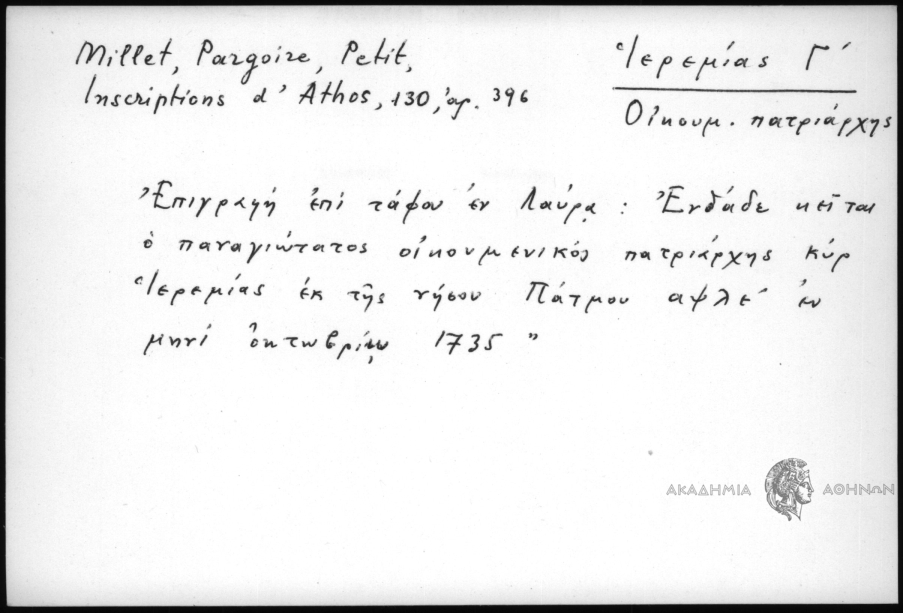 Millet, Pargoire, Petit,
Inscriptions d' Athos, 130, ἀρ. 396
Ἱερεμίας Γ΄
Οἰκουμ. πατριάρχης
Ἐπιγραφή ἐπί τάφου ἐν Λαύρᾳ : Ἐνθάδε κεῖται
ὁ παναγιώτατος οἰκουμενικός πατριάρχης κύρ
Ἱερεμίας ἐκ τῆς νήσου Πάτμου αψλε΄ ἐν
μηνί ὀκτωβρίῳ 1735 "
ΑΚΑΔΗΜΙΑ ΑΘΗΝΩΝ